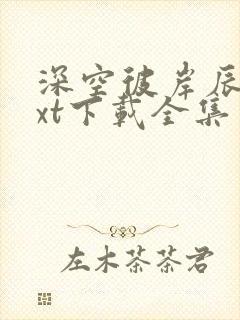 深空彼岸辰
xt下载全集
左木茶茶君